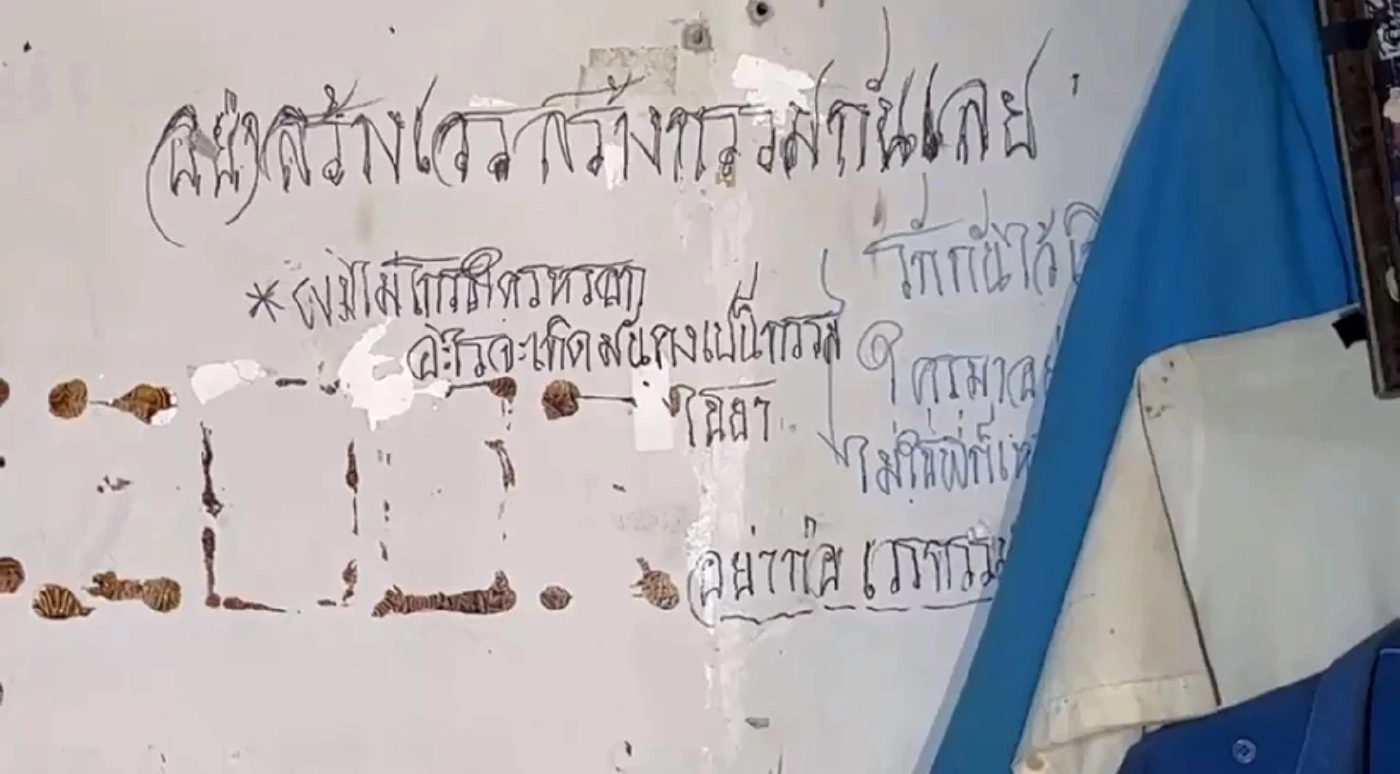 อย่าสร้างเวรสร้างกรรมกันเลย
รักกันไว้
* ผมไม่โกรธใครหรอก
อะไรจะเกิดมันคงเป็นกรรม
ใครมา
ไม่ใช่
อย่าก่อ เวรกรรม